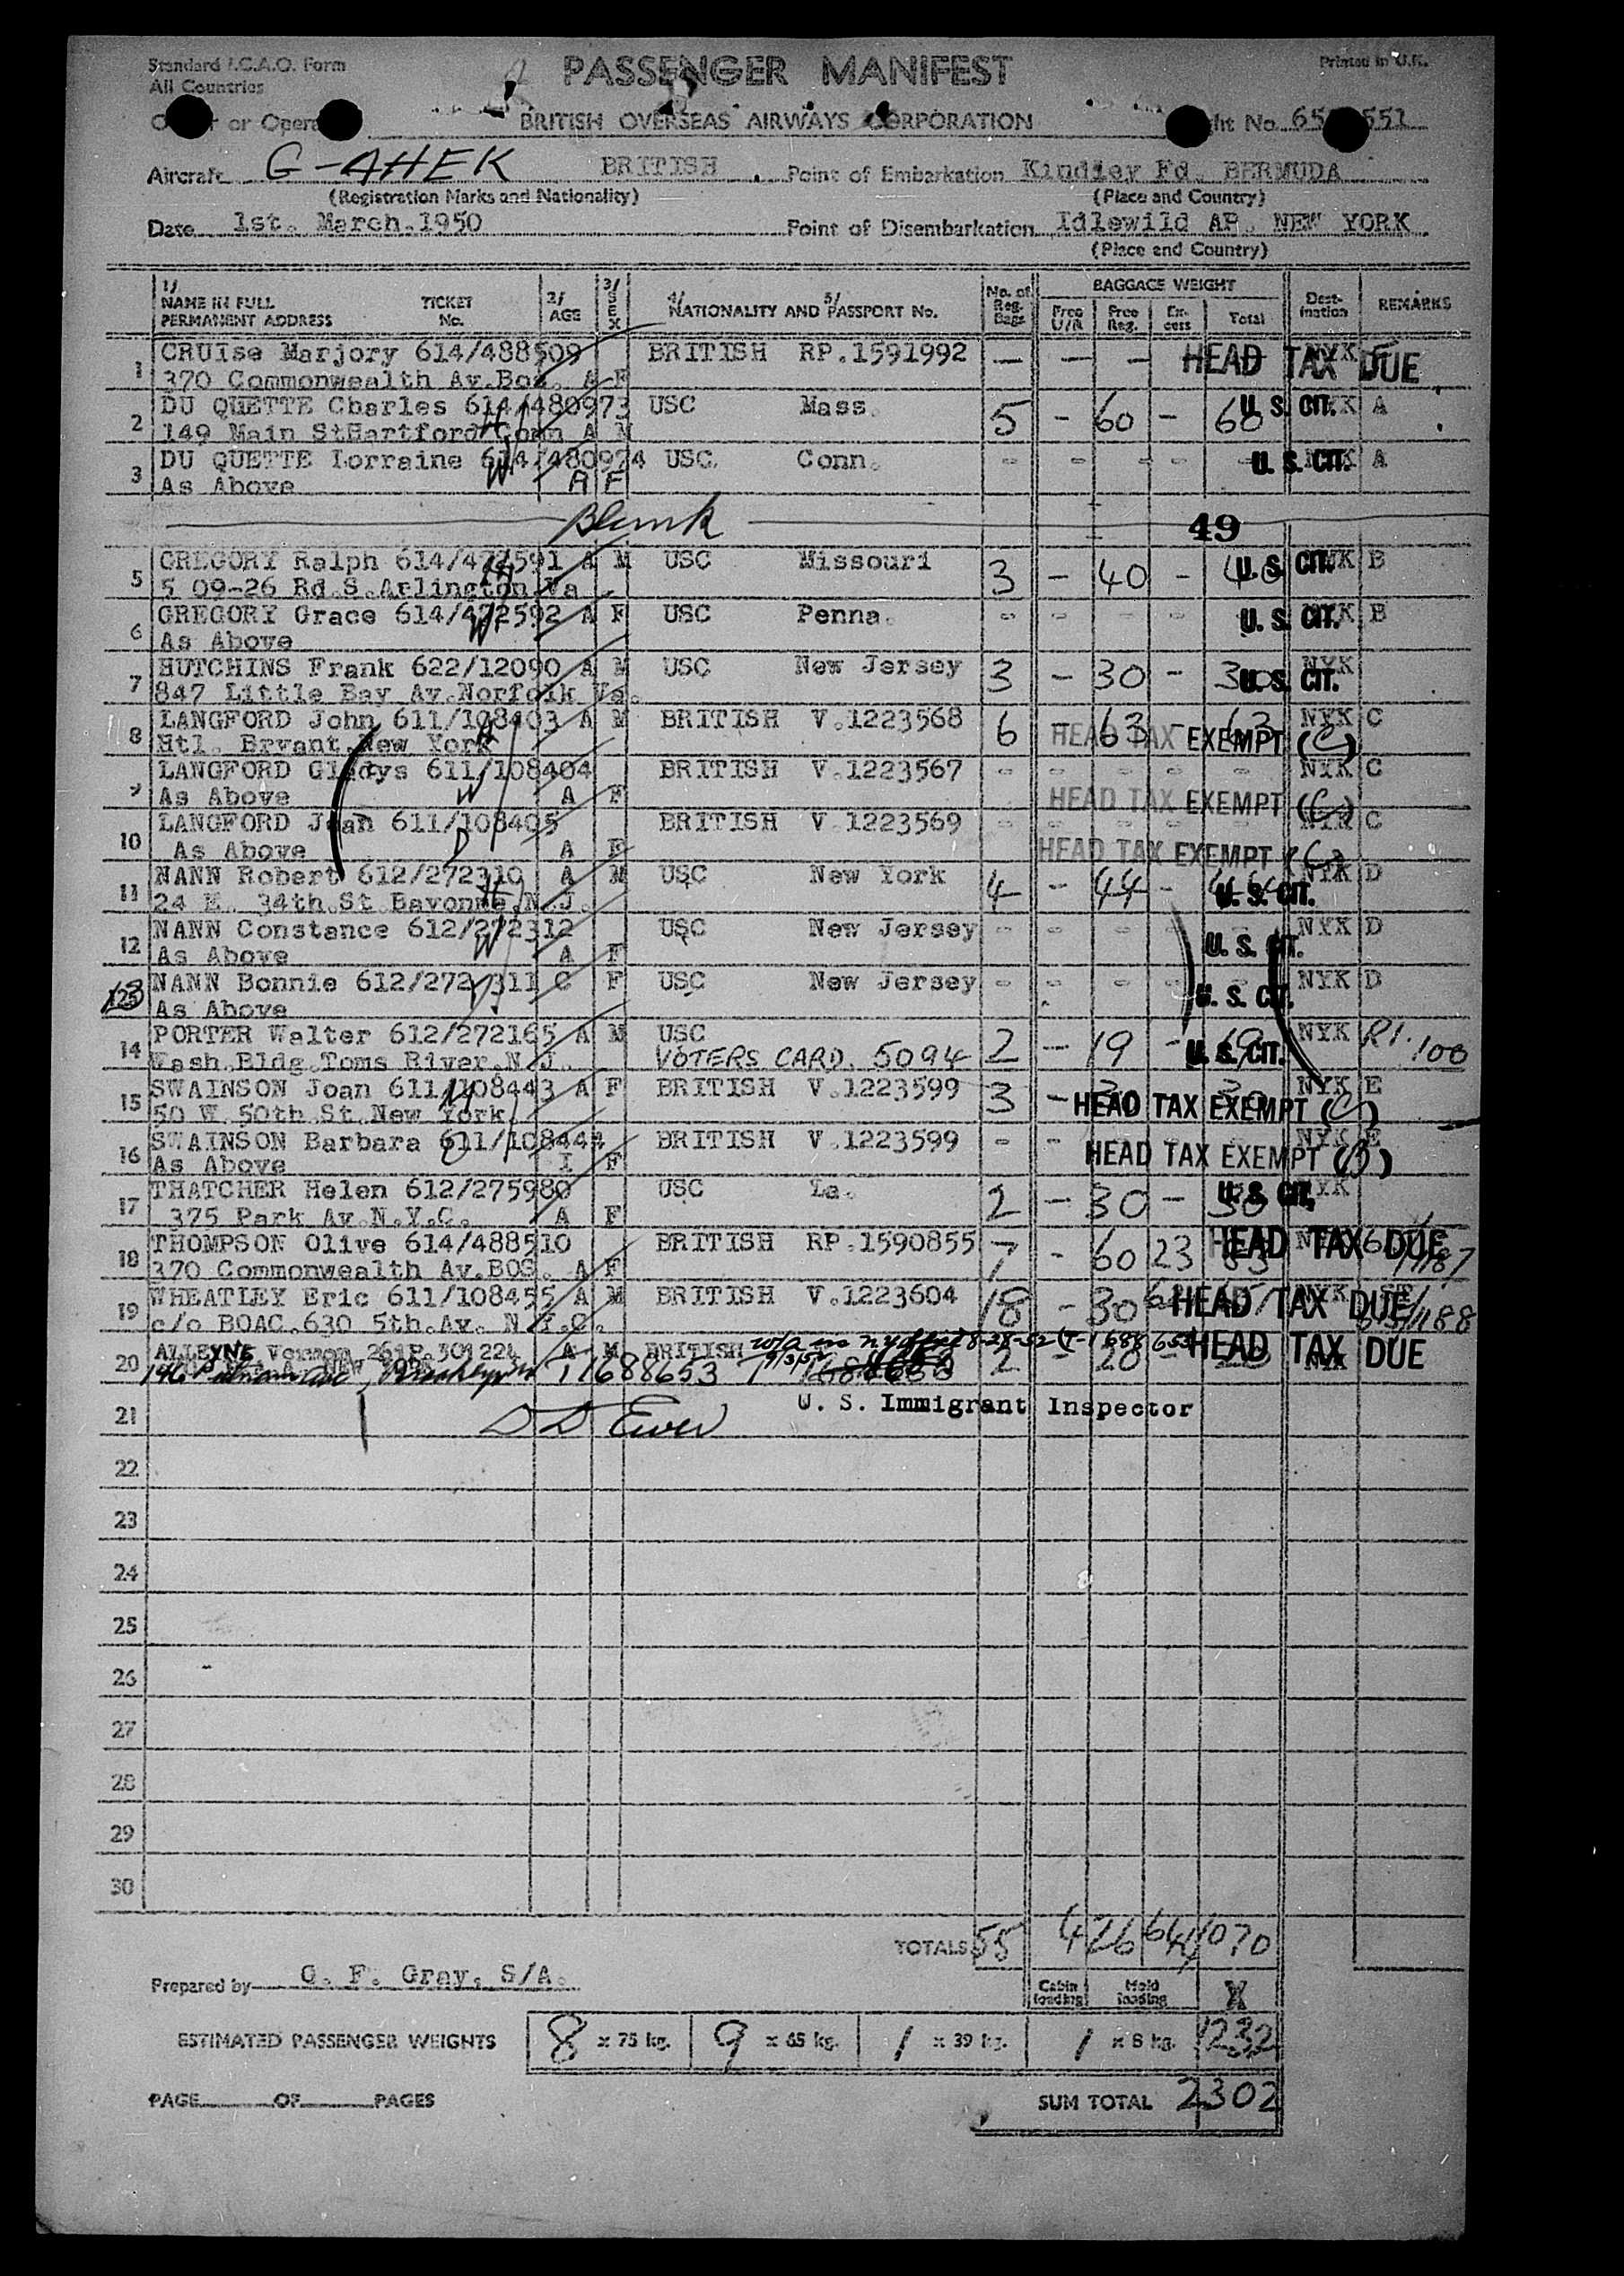 Standard I.C.A.O. Form
All Countries
PASSENGER MANIFEST
Printed in U.K.
or Opera
BRITISH OVERSEAS AIRWAYS CORPORATION
ht No. 65 551
Aircraft G-AHEK BRITISH Point of Embarkation Kindley Fd. BERMUDA
(Registration Marks and Nationality) (Place and Country)
Date 1st. March.1950 Point of Disembarkation Idlewild AP. NEW YORK
(Place and Country)
1/ NAME IN FULL PERMANENT ADDRESS TICKET No. 2/ AGE 3/ SEX 4/ NATIONALITY AND 5/ PASSPORT No. No. of Reg. Bags BAGGAGE WEIGHT Free U/R Free Reg. Excess Total Destination REMARKS
1 CRUISe Marjory 614/488509 BRITISH RP.1591992 - - - HEAD TAX DUE NYK
370 Commonwealth Av.Bos. A F
2 DU QUETTE Charles 614/480973 USC Mass. 5 - 60 - 60 U. S. CIT. NYK A
149 Main StHartford Conn A M
3 DU QUETTE Lorraine 614/480974 USC. Conn. - - - - U. S. CIT. NYK A
As Above A F
Blank 49
5 GREGORY Ralph 614/472591 A M USC Missouri 3 - 40 - 40 U. S. CIT. NYK B
5 09-26 Rd.S.Arlington Va
6 GREGORY Grace 614/472592 A F USC Penna. - - - - U. S. CIT. NYK B
As Above
7 HUTCHINS Frank 622/12090 A M USC New Jersey 3 - 30 - 30 U. S. CIT. NYK
847 Little Bay Av.Norfolk Va.
8 LANGFORD John 611/108403 A M BRITISH V.1223568 6 - 63 - 63 HEAD TAX EXEMPT (C) NYK C
Htl. Bryant.New York
9 LANGFORD Gladys 611/108404 BRITISH V.1223567 - - - - - NYK C
As Above A F HEAD TAX EXEMPT (C)
10 LANGFORD Joan 611/108405 BRITISH V.1223569 - - - - - NYK C
As Above A F HEAD TAX EXEMPT (C)
11 NANN Robert 612/272310 A M USC New York 4 - 44 - 44 U. S. CIT. NYK D
24 E. 34th.St Bayonne.N.J.
12 NANN Constance 612/272312 USC New Jersey - - - - - NYK D
As Above A F U. S. CIT.
13 NANN Bonnie 612/272311 C F USC New Jersey - - - - - NYK D
As Above U. S. CIT.
14 PORTER Walter 612/272165 A M USC 2 - 19 - 19 U. S. CIT. NYK R1.100
Wash.Bldg.Toms River.N.J. VOTERS CARD. 5094
15 SWAINSON Joan 611/108443 A F BRITISH V.1223599 3 - 30 - 30 NYK E
50 W.50th.St.New York HEAD TAX EXEMPT (C)
16 SWAINSON Barbara 611/108444 BRITISH V.1223599 - - NYK E
As Above I F HEAD TAX EXEMPT (B)
17 THATCHER Helen 612/275980 USC La. 2 - 30 - 30 U. S. CIT. NYK
375 Park Av.N.Y.C. A F
18 THOMPSON Olive 614/488510 BRITISH RP.1590855 7 - 60 23 83 HEAD TAX DUE
370 Commonwealth Av.BOS. A F
19 WHEATLEY Eric 611/108455 A M BRITISH V.1223604 18 - 30 HEAD TAX DUE NYK
c/o BOAC.630 5th.Av. N.Y.C.
20 ALLEYNE Vernon A M BRITISH 2 - 20 HEAD TAX DUE
Brooklyn T1688653
21 D D Ewer U. S. Immigrant Inspector
22
23
24
25
26
27
28
29
30
TOTALS 55 426 644 1070
Prepared by G. F. Gray, S/A. Cabin loading Hold loading X
ESTIMATED PASSENGER WEIGHTS 8 x 75 kg. 9 x 65 kg. 1 x 39 kg. 1 x 8 kg. 1232
PAGE OF PAGES SUM TOTAL 2302